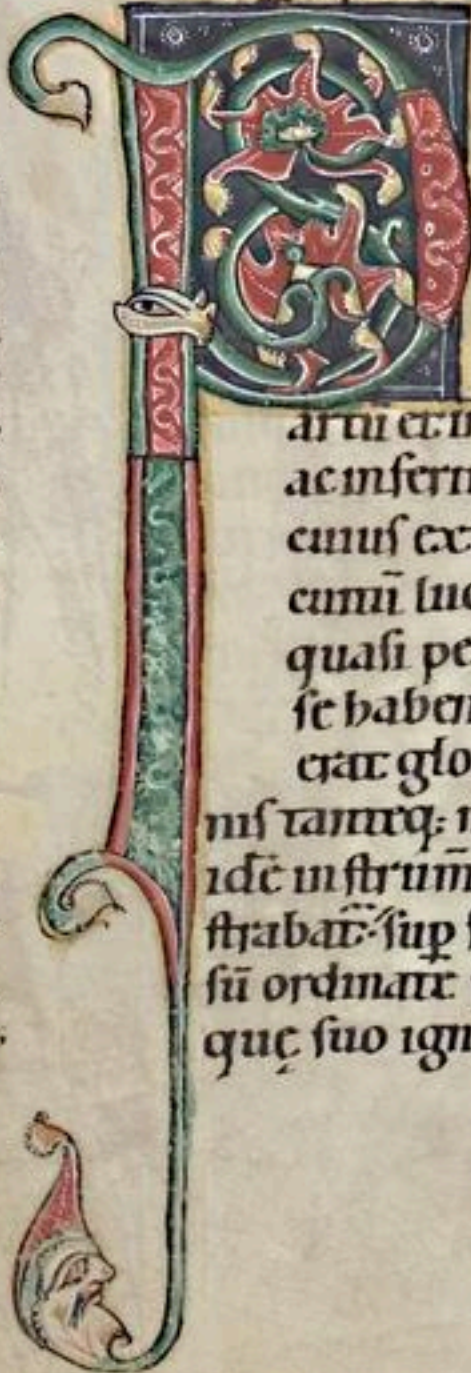 P
artū et in
ac inferi
cuius ext
cuitū luc
quasi pe
se haben
erat glo
nis tanteq; m
idē instrum
strabat͛ sup̄ s
sū ordinate
quę suo ign